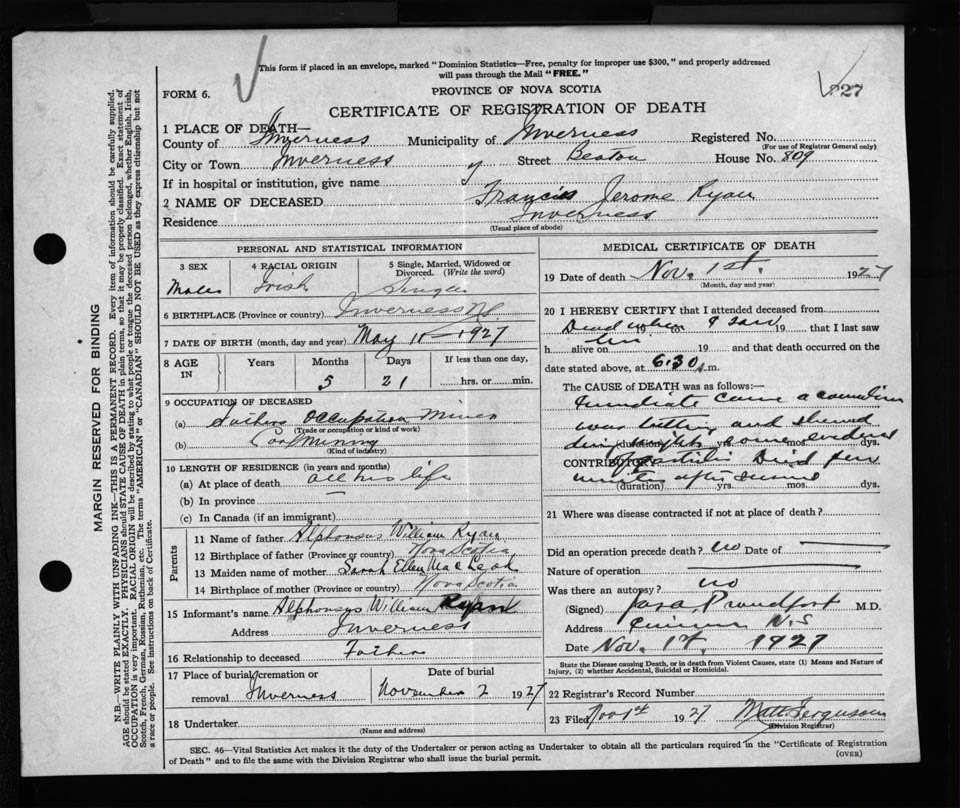 This form if placed in an envelope, marked "Dominion Statistics—Free, penalty for improper use $300," and properly addressed
will pass through the Mail "FREE."
FORM 6.
PROVINCE OF NOVA SCOTIA
827
CERTIFICATE OF REGISTRATION OF DEATH
1 PLACE OF DEATH—
County of Inverness Municipality of Inverness Registered No.
(For use of Registrar General only)
City or Town Inverness Street Beaton House No. 809
If in hospital or institution, give name
2 NAME OF DECEASED Francis Jerome Ryan
Residence Inverness
(Usual place of abode)
PERSONAL AND STATISTICAL INFORMATION
3 SEX 4 RACIAL ORIGIN 5 Single, Married, Widowed or Divorced. (Write the word)
Male Irish Single
6 BIRTHPLACE (Province or country) Inverness N.S.
7 DATE OF BIRTH (month, day and year) May 11 1927
8 AGE IN Years Months Days If less than one day,
5 21 hrs. or min.
9 OCCUPATION OF DECEASED
(a) Fathers Occupation Miner
(Trade or occupation or kind of work)
(b) Coal Mining
(Kind of industry)
10 LENGTH OF RESIDENCE (in years and months)
(a) At place of death all his life
(b) In province
(c) In Canada (if an immigrant)
Parents
11 Name of father Alphonsus William Ryan
12 Birthplace of father (Province or country) Nova Scotia
13 Maiden name of mother Sarah Ellen MacLeod
14 Birthplace of mother (Province or country) Nova Scotia
15 Informant's name Alphonsus William Ryan
Address Inverness
16 Relationship to deceased Father
17 Place of burial, cremation or removal Inverness Date of burial November 2 1927
18 Undertaker
(Name and address)
MEDICAL CERTIFICATE OF DEATH
19 Date of death Nov. 1st. 1927
(Month, day and year)
20 I HEREBY CERTIFY that I attended deceased from
Dead when I saw 19 that I last saw
h alive on 19 and that death occurred on the
date stated above, at 6.30 a.m.
The CAUSE of DEATH was as follows:—
Immediate cause
was and
(duration) yrs. mos. dys.
CONTRIBUTORY Died few
minutes after
(duration) yrs. mos. dys.
21 Where was disease contracted if not at place of death?
Did an operation precede death? no Date of
Nature of operation
Was there an autopsy? no
(Signed) Proudfoot M.D.
Address N.S
Date Nov. 1st. 1927
State the Disease causing Death, or in death from Violent Causes, state (1) Means and Nature of
Injury, (2) whether Accidental, Suicidal or Homicidal.
22 Registrar's Record Number
23 Filed Nov 1st 1927 Matt Ferguson
(Division Registrar)
SEC. 46—Vital Statistics Act makes it the duty of the Undertaker or person acting as Undertaker to obtain all the particulars required in the "Certificate of Registration
of Death" and to file the same with the Division Registrar who shall issue the burial permit.
(OVER)
MARGIN RESERVED FOR BINDING
N.B.—WRITE PLAINLY WITH UNFADING INK—THIS IS A PERMANENT RECORD. Every item of information should be carefully supplied.
AGE should be stated EXACTLY. PHYSICIANS should STATE CAUSE OF DEATH in plain terms, so that it may be properly classified. Exact statement of
OCCUPATION is very important. RACIAL ORIGIN will be described by stating to what people or tongue the deceased person belonged, whether English, Irish,
Scotch, French, German, Russian, Ruthenian, etc. The terms "AMERICAN" or "CANADIAN" SHOULD NOT BE USED as they express citizenship but not
a race or people. See instructions on back of Certificate.